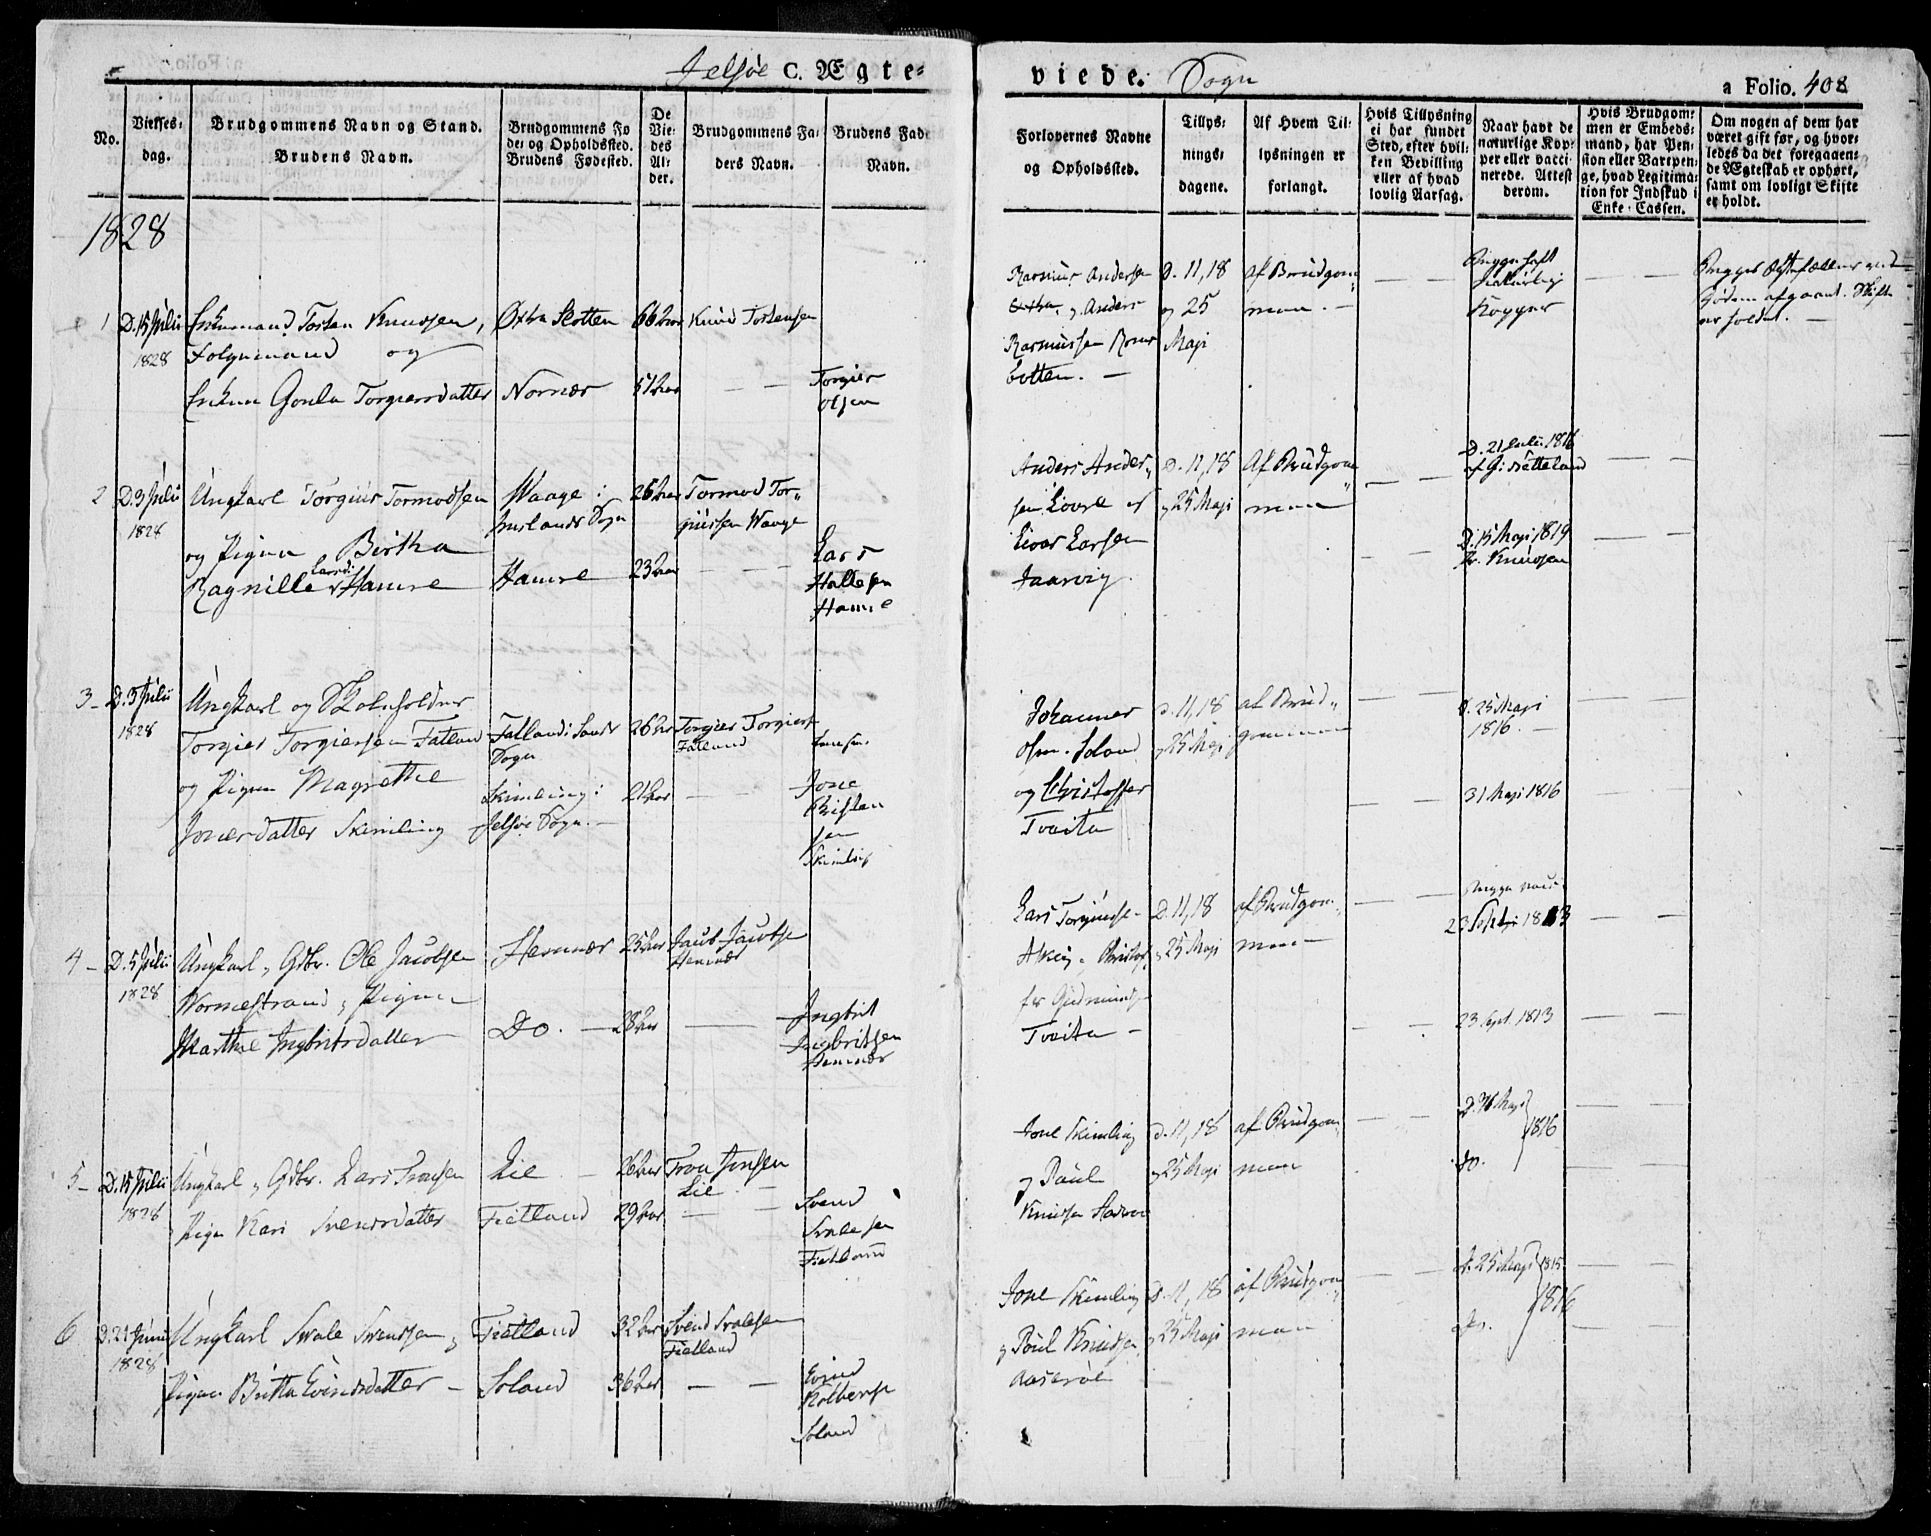 Jelsøe C. Ægte-
viede. Sogn
a Folio. 408
No.
Vielses-
dag.
Brudgommens Navn og Stand.
Brudens Navn.
Brudgommens Fø
de- og Opholdssted.
Brudens Fødested.
De
Vie-
des
Al-
der.
Brudgommens Fa-
ders Navn.
Brudens Fad
Navn.
Forlovernes Navne
og Opholdssted.
Tillys-
nings-
dagene.
Af Hvem Til-
lysningen er
forlangt.
Hvis Tillysning
ei har fundet
Sted, efter hvil-
ken Bevilling
eller af hvad
lovlig Aarsag.
Naar havt de
naturlige Kop-
per eller vacci-
nerede. Attest
derom.
Hvis Brudgom-
men er Embeds-
mand, har Pen-
sion eller Vartpen-
ge, hvad Legitima-
tion for Indskud i
Enke-Cassen.
Om nogen af dem har
været gift før, og hvor-
ledes da det foregaaen-
de Ægteskab er ophørt,
samt om lovligt Skifte
er holdt.
1828
1 D. 15 Julii
1828
Enkemand Torsten Knudsen,
Folgemand og
Enken Gonla Torgiersdatter
Slotten
Nornær
66 Aar
51 Aar
Knud Torstensen
Torgier
Olsen
Rasmus Andersen
og Anders
Rasmussen
botten. —
D. 11, 18
og 25
Maji
af Brudgom-
men. —
Begge haft
Naturlig
Kopper
Skifte
er holdet. —
2 D. 3 Julii
1828
Ungkarl Torgius Tormodsen
og Pigen Birtha
Ragnille Larsd: Hamre
Waage i
Sogn
Hamre
26 Aar
23 Aar
Tormod Tor-
giussen Waage
Lars
Hallesen
Hamre
Anders Ander-
sen
Iver Larsen
Jaasvig.
D. 11, 18
og 25 Maji
Af Brudgom-
men
D. 21 Julii 1816
D. 15 Maji 1819
Knudsen
3 D. 3 Julii
1828
Ungkarl og Skoleholder
Torgier Torgiersen Fatland
og Pigen Magrethe
Jonersdatter Skimling
Fatland i Sands
Sogn
Skimling i
Jelsøe Sogn. —
26 Aar
21 Aar
Torgier Torgiers
Fatland
Jone
Christen
sen
Skimling
Johannes
Olsen Soland
og Christoffer
Tveita
D. 11, 18
og 25 Maji
af Brud-
gommen
D. 25 Maji
1816. —
31 Maji 1816
4 D. 5 Julii
1828
Ungkarl, Gdbr. Ole Jacobsen
Nornestrand, Pigen
Marthe Ingbritsdatter
Hennær
Do. —
25 Aar
28 Aar
Jacob Jacobse
Hennær
Ingbrit
Ingbritsen
Hennær
Lars Torgiuse
Christof-
fer Gudmunds
Tveita —
D. 11, 18
og 25 Maji
af Brudgom-
men —
Begge vac:
23 Sept 1813
23 Sept. 1813
5 D. 15 Julii
1828
Ungkarl, Gdbr. Lars Tronsen
Pigen Kari Svendsdatter
Lie
Fietland
26 Aar
29 Aar
Tron Jonsen
Lie. —
Svend
Svalesen
Fietland
Jone Skimling
og Poul
Knudsen
D. 11, 18
og 25 Maji
af Brudgom-
men
D. 16 Maji
1816
do.
6 D. 21 Junii
1828
Ungkarl Svale Svendsen og
Pigen Britta Eivindsdatter —
Fietland
Soland
32 Aar
36 Aar
Svend Svalesen
Fietland
Eivind
Kolbense
Soland
Jone Skimling
og Poul Knudsen
Aaserøe
D. 11, 18
og 25 Maji
af Brudgom-
men
D. 25 Maji 1815
1816